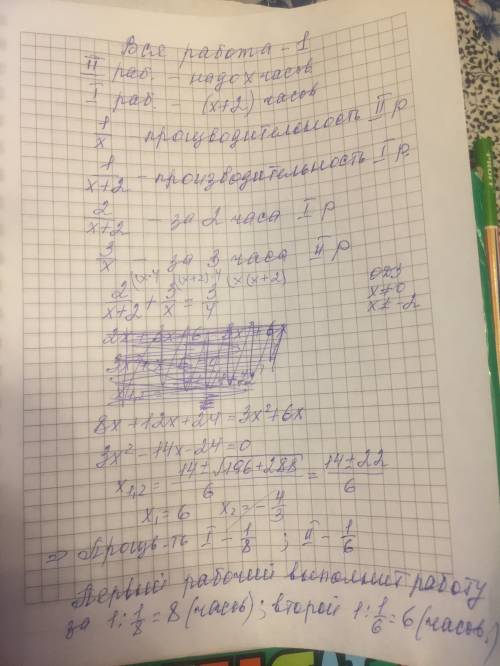 Вся работа - 1
II раб. - надо x часов
I раб. - (x+2) часов
1/x - производительность II р
1/(x+2) - производительность I р.
2/(x+2) - за 2 часа I р
3/x - за 3 часа II р
2/(x+2) + 3/x = 3/4
ОДЗ
x≠0
x≠-2
8x+12x+24=3x²+6x
3x²-14x-24=0
x₁,₂ = (14±√(196+288))/6 = (14±22)/6
x₁=6 x₂=-4/3
⇒ Произв-ть I - 1/8 ; II - 1/6
Первый рабочий выполнит работу
за 1:1/8=8 (часов); второй 1:1/6=6 (часов.)